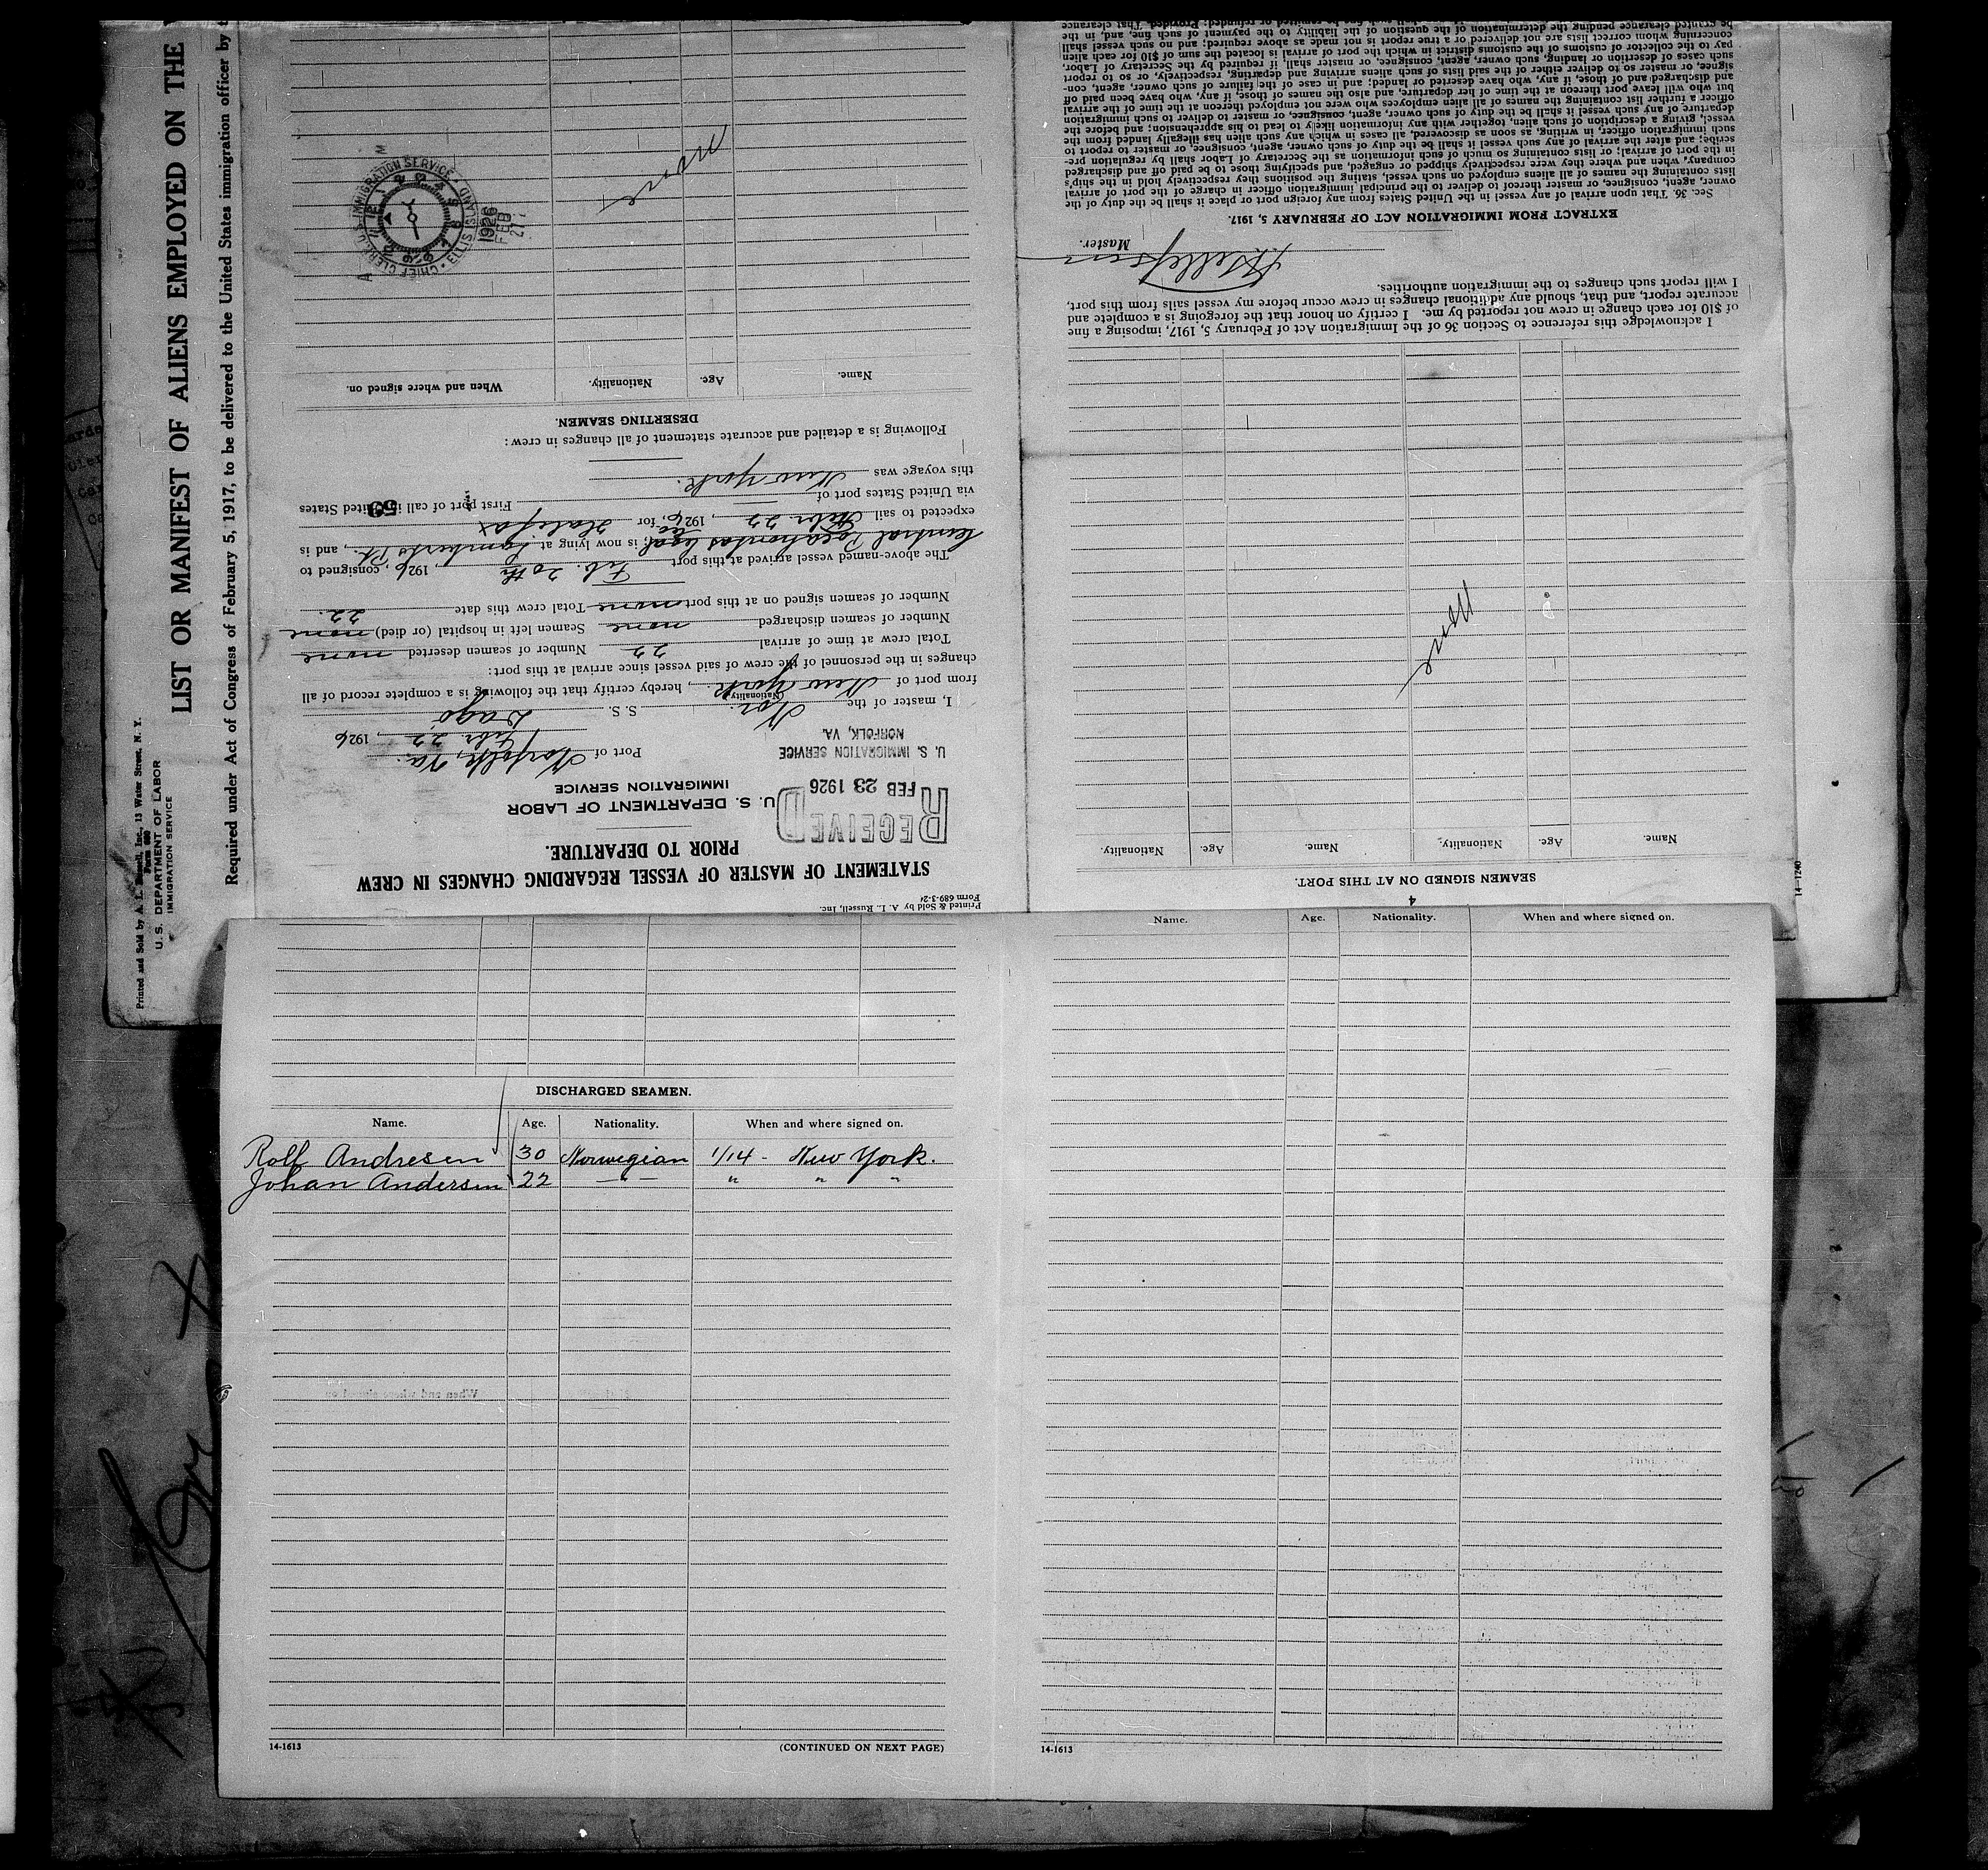 LIST OR MANIFEST OF ALIENS EMPLOYED ON THE
Required under Act of Congress of February 5, 1917, to be delivered to the United States immigration officer by
Printed and Sold by A. L. Russell, Inc., 13 Water Street, N. Y.
Form 680
U. S. DEPARTMENT OF LABOR
IMMIGRATION SERVICE
Printed & Sold by A. L. Russell, Inc.
Form 689-3-24
STATEMENT OF MASTER OF VESSEL REGARDING CHANGES IN CREW
PRIOR TO DEPARTURE.
RECEIVED
FEB 23 1926
U. S. IMMIGRATION SERVICE
NORFOLK, VA.
U. S. DEPARTMENT OF LABOR
IMMIGRATION SERVICE
Port of Norfolk, Va.
Febr. 22, 1926
I, master of the Nor. S. S. Dagö
(Nationality)
from port of New York, hereby certify that the following is a complete record of all
changes in the personnel of the crew of said vessel since arrival at this port:
Total crew at time of arrival 22 Number of seamen deserted none
Number of seamen discharged none Seamen left in hospital (or died) none
Number of seamen signed on at this port none Total crew this date 22.
The above-named vessel arrived at this port Feb. 20th, 1926, consigned to
Central Pocahontas Coal Co; is now lying at Lamberts Pt., and is
expected to sail Febr. 22, 1926, for Halifax
via United States port of First port of call in United States
59
this voyage was New York.
Following is a detailed and accurate statement of all changes in crew:
DESERTING SEAMEN.
Name. Age. Nationality. When and where signed on.
None
CHIEF CLERK U.S. IMMIGRATION SERVICE · ELLIS ISLAND
1926
FEB
27
A M
4
SEAMEN SIGNED ON AT THIS PORT.
Name. Age. Nationality. Name. Age. Nationality.
None
I acknowledge this reference to Section 36 of the Immigration Act of February 5, 1917, imposing a fine
of $10 for each change in crew not reported by me. I certify on honor that the foregoing is a complete and
accurate report, and that, should any additional changes in crew occur before my vessel sails from this port,
I will report such changes to the immigration authorities.
Master.
EXTRACT FROM IMMIGRATION ACT OF FEBRUARY 5, 1917.
Sec. 36. That upon arrival of any vessel in the United States from any foreign port or place it shall be the duty of the
owner, agent, consignee, or master thereof to deliver to the principal immigration officer in charge of the port of arrival
lists containing the names of all aliens employed on such vessel, stating the positions they respectively hold in the ship's
company, when and where they were respectively shipped or engaged, and specifying those to be paid off and discharged
in the port of arrival; or lists containing so much of such information as the Secretary of Labor shall by regulation pre-
scribe; and after the arrival of any such vessel it shall be the duty of such owner, agent, consignee, or master to report to
such immigration officer, in writing, as soon as discovered, all cases in which any such alien has illegally landed from the
vessel, giving a description of such alien, together with any information likely to lead to his apprehension; and before the
departure of any such vessel it shall be the duty of such owner, agent, consignee, or master to deliver to such immigration
officer a further list containing the names of all alien employees who were not employed thereon at the time of the arrival
but who will leave port thereon at the time of her departure, and also the names of those, if any, who have been paid off
and discharged and of those, if any, who have deserted or landed; and in case of the failure of such owner, agent, con-
signee, or master so to deliver either of the said lists of such aliens arriving and departing, respectively, or so to report
such cases of desertion or landing, such owner, agent, consignee, or master shall, if required by the Secretary of Labor,
pay to the collector of customs of the customs district in which the port of arrival is located the sum of $10 for each alien
concerning whom correct lists are not delivered or a true report is not made as above required; and no such vessel shall
be granted clearance pending the determination of the question of the liability to the payment of such fine, and, in the
14-1240
DISCHARGED SEAMEN.
Name. Age. Nationality. When and where signed on.
Rolf Andresen 30 Norwegian 1/14 - New York.
Johan Andersen 22 — " — " " "
14-1613 (CONTINUED ON NEXT PAGE)
Name. Age. Nationality. When and where signed on.
14-1613